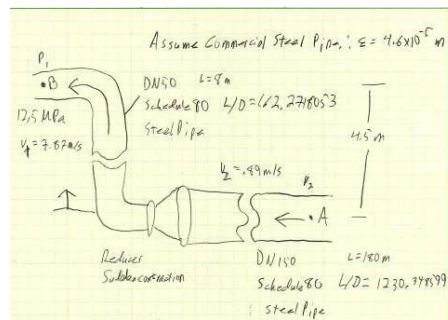 Assume Commercial Steel Pipe, ∴ ε = 4.6x10⁻⁵ m
P₁
•B
DN50 L=8m
Schedule 80 L/D=162.2718053
Steel Pipe
12.5 MPa
V₁=7.82m/s
4.5m
V₂=.89m/s
P₂
•A
Reducer
Sudden contraction
DN150 L=180m
Schedule 80 L/D=1230.348599
Steel Pipe